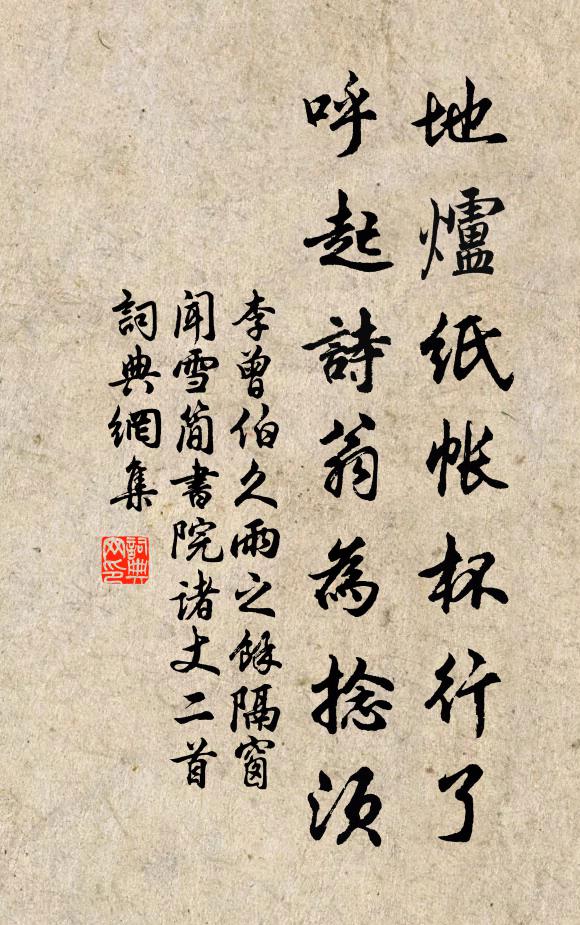 地爐紙帳杯行了
呼起詩翁為捻須
李曾伯久雨之餘隔窗
聞雪簡書院诸丈二首
詞典網集
詞典
网印